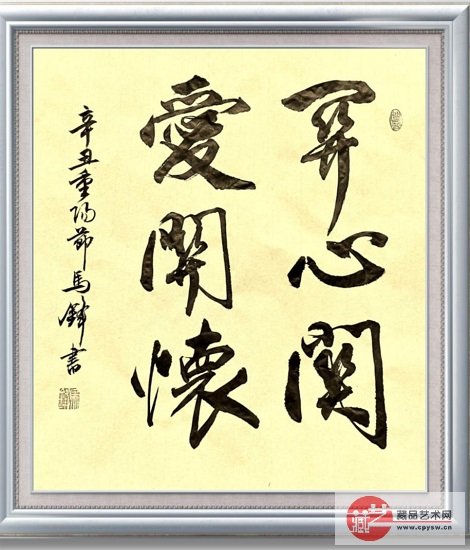 關心關
愛開懷
辛丑重陽節馬鋒書
藏艺
藏品艺术网
www.cpysw.cn